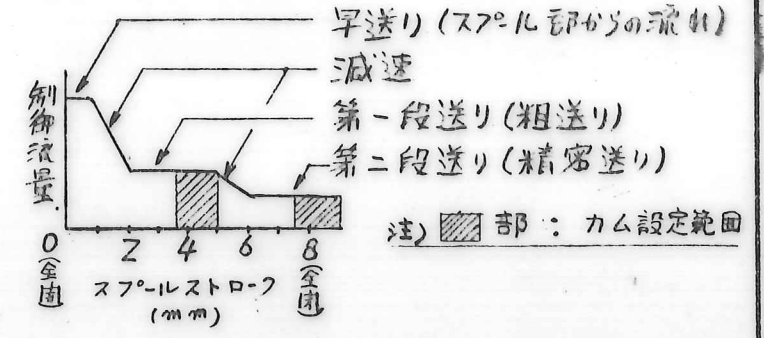 早送り(スプール部からの流れ)
減速
第一段送り(粗送り)
第二段送り(精密送り)
制御流量
注) 部 : カム設定範囲
0 2 4 6 8
(全開)
(全閉)
スプールストローク
(mm)